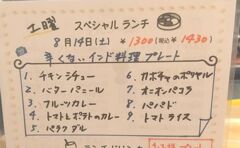 土曜 スペシャル ランチ
8月14日(土) ¥1300(税込¥1430)
辛くない インド料理 プレート
1. チキンシチュー
2. バターパニール
3. フルーツカレー
4. トマトとポテトのカレー
5. パラクダル
6. カボチャのポリヤル
7. オニオンパコラ
8. パパド
9. トマトライス